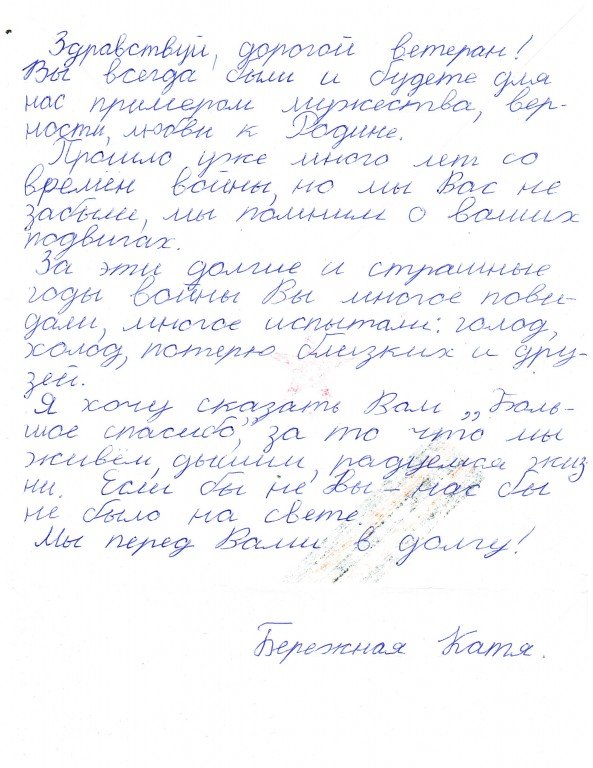 Здравствуй, дорогой ветеран!
Вы всегда были и будете для
нас примером мужества, вер-
ности, любви к Родине.
Прошло уже много лет со
времён войны, но мы Вас не
забыли, мы помним о ваших
подвигах.
За эти долгие и страшные
годы войны Вы многое пови-
дали, многое испытали: голод,
холод, потерю близких и дру-
зей.
Я хочу сказать Вам „Боль-
шое спасибо", за то что мы
живём, дышим, радуемся жиз
ни. Если бы не Вы - нас бы
не было на свете.
Мы перед Вами в долгу!
Бережная Катя.